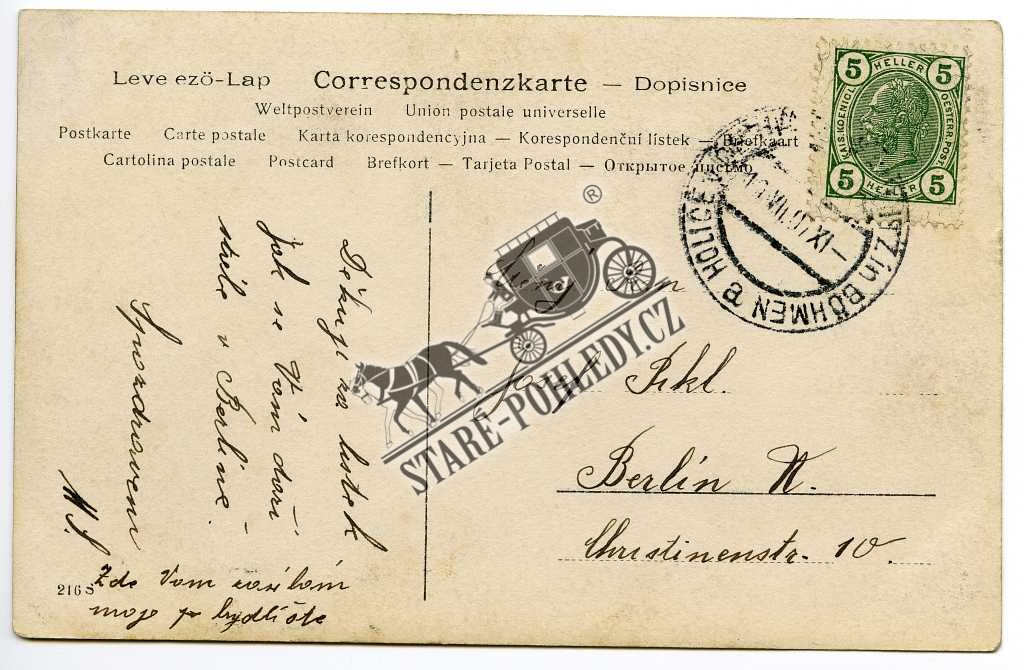 Levelező-Lap Correspondenzkarte — Dopisnice
Weltpostverein Union postale universelle
Postkarte Carte postale Karta korespondencyjna — Korespondenční lístek — Briefkaart
Cartolina postale Postcard Brefkort — Tarjeta Postal — Открытое письмо
5 HELLER 5
KAIS. KOENIGL. OESTERR. POST
5 HELLER 5
HOLICE
HOLITZ in BÖHMEN
VII.07.XI-
®
STARÉ-POHLEDY.CZ
Děkuji za lístek
jak se Vám daří
stále v Berlíně.
S pozdravem
Zde Vám zasílám
moje bydliště
216 S
Josef
Berlín N.
Christinenstr. 10